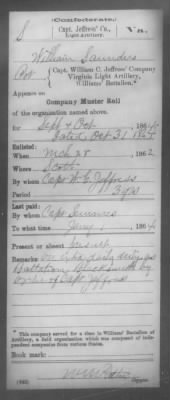 (Confederate.)
S Capt. Jeffress' Co., Light Artillery. Va.
William Saunders
Capt. William C. Jeffress' Company
Virginia Light Artillery,
Williams' Battalion.*
Appears on
Company Muster Roll
of the organization named above,
for Sept & Oct, 1864
dated Oct 31 1864
Enlisted:
When Mch 28, 1862
Where Scott
By whom Capt W. C. Jeffress
Period 3 yrs
Last paid:
By whom Capt
To what time Jany 1, 1864
Present or absent
Remarks: On daily duty as
Battalion Blacksmith by
order of Capt Jeffress
* This company served for a time in Williams' Battalion of Artillery, a field organization which was composed of independent companies from various States.
Book mark:
(642)
Copyist.